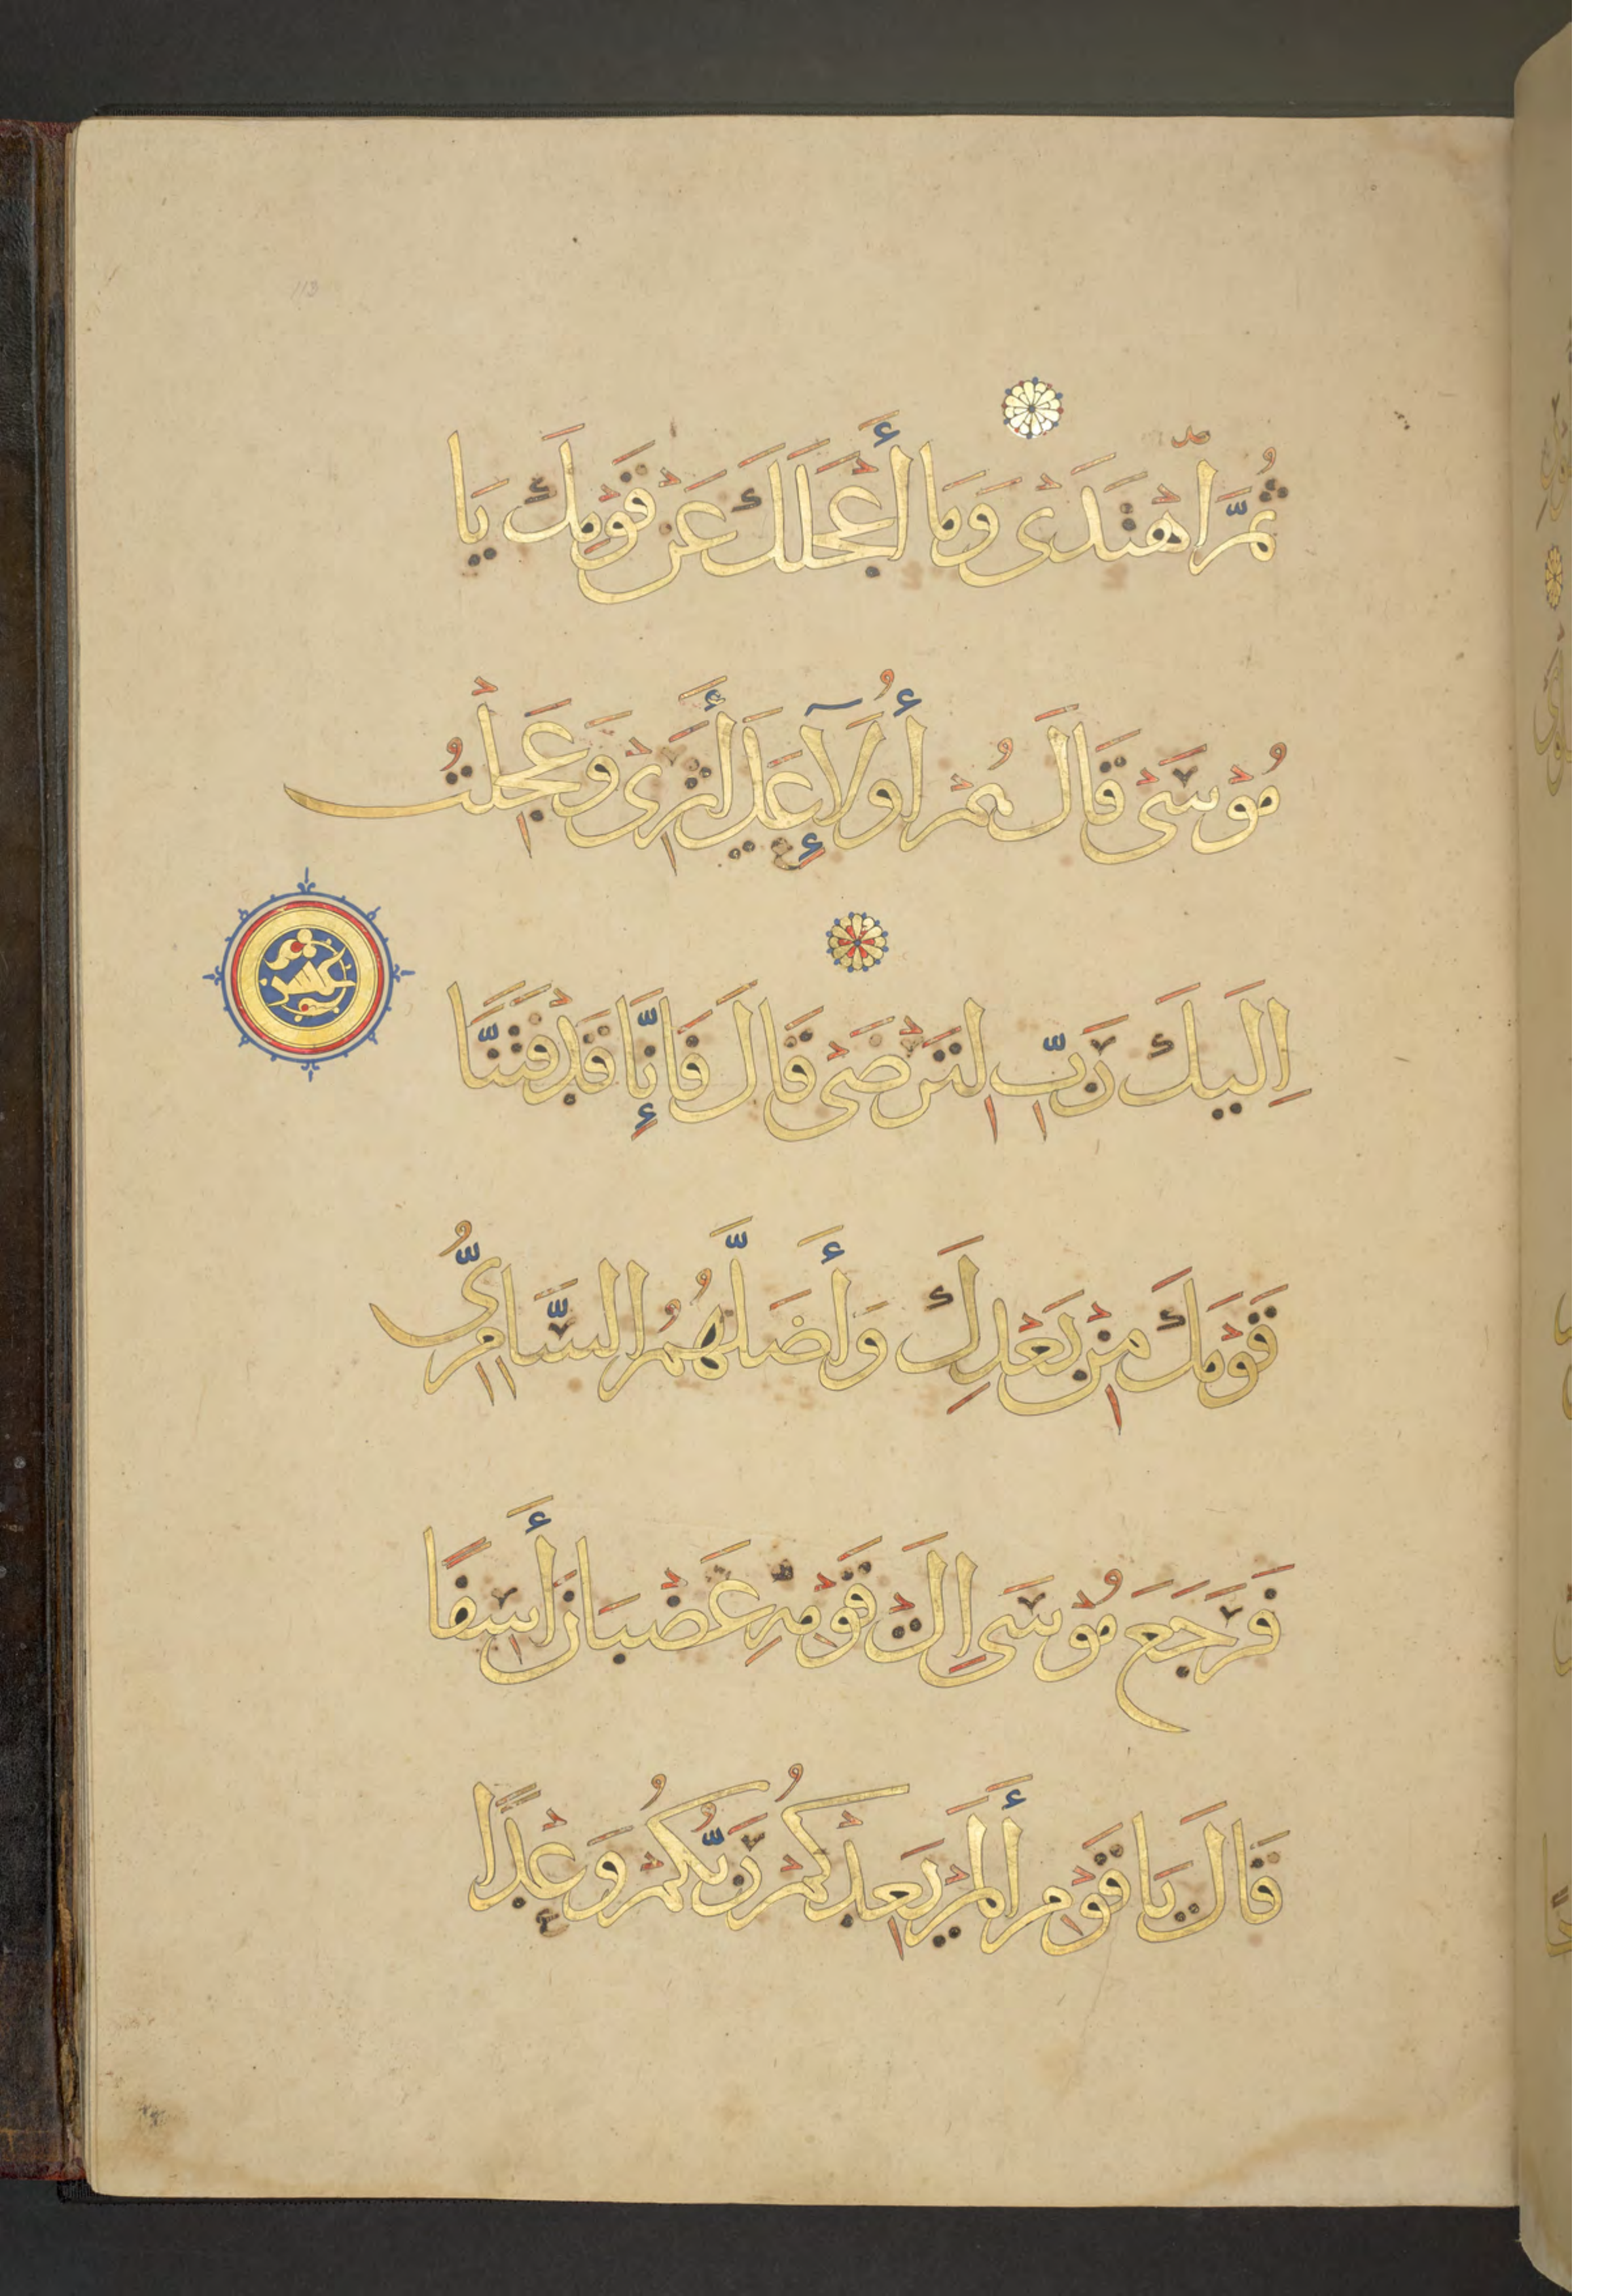 ثُمَّ اهْتَدَىٰ وَمَا أَعْجَلَكَ عَنْ قَوْمِكَ يَا
مُوسَىٰ قَالَ هُمْ أُولَآءِ عَلَىٰ أَثَرِي وَعَجِلْتُ
إِلَيْكَ رَبِّ لِتَرْضَىٰ قَالَ فَإِنَّا قَدْ فَتَنَّا
قَوْمَكَ مِنْ بَعْدِكَ وَأَضَلَّهُمُ السَّامِرِيُّ
فَرَجَعَ مُوسَىٰ إِلَىٰ قَوْمِهِ غَضْبَانَ أَسِفًا
قَالَ يَا قَوْمِ أَلَمْ يَعِدْكُمْ رَبُّكُمْ وَعْدًا